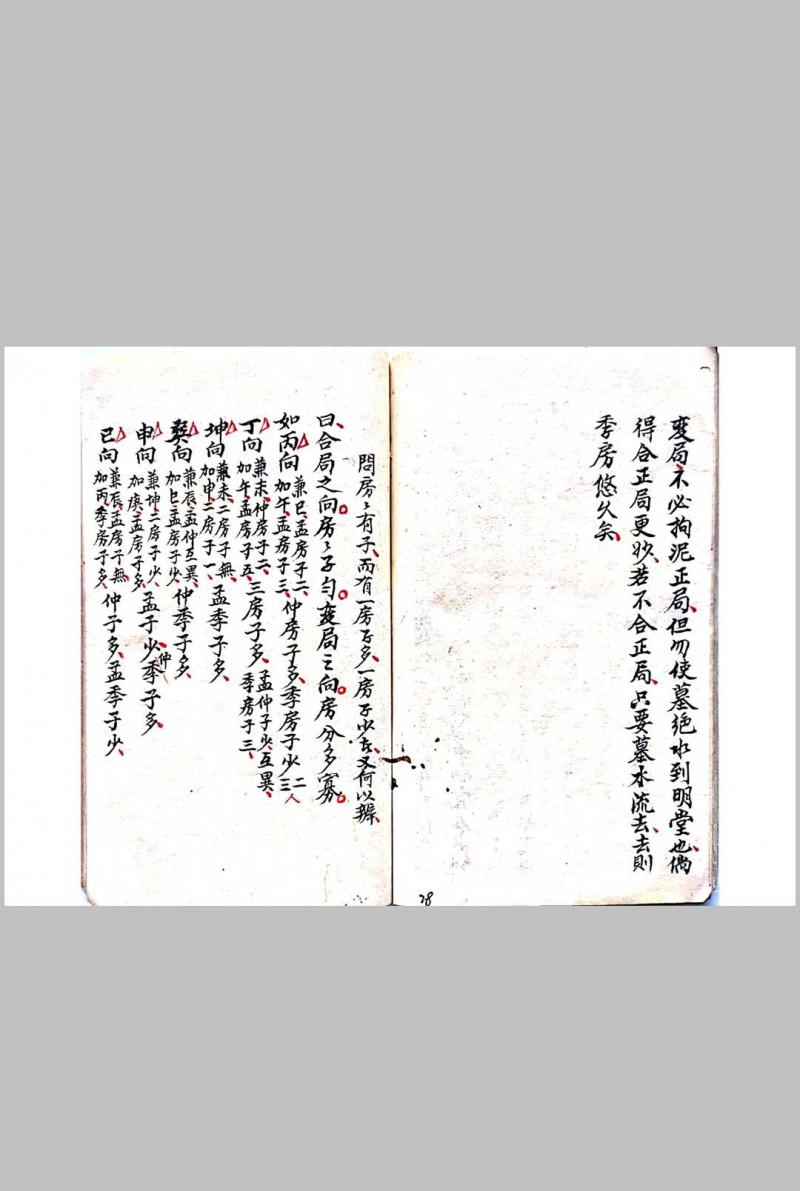 变局不必拘泥正局但勿使墓绝水到明堂也偶
得合正局更妙若不合正局只要墓水流去去则
季房悠久矣
問房〻有子而有一房子多一房子少者又何以辨
曰合局之向房〻子勻变局之向房分多寡
如丙向 兼巳孟房子二 加午孟房子三 仲房子多季房子少 二三人
丁向 兼未仲房子二 加午孟房子五 三房子多 孟仲子少互異 季房子三
坤向 兼未二房子無 加申二房子一 孟季子多
巽向 兼辰孟仲互異 加巳孟房子少 仲季子多
申向 兼坤二房子少 加庚孟房子多 孟子少仲季子多
巳向 兼辰孟房子無 加丙季房子多 仲子多孟季子少
28